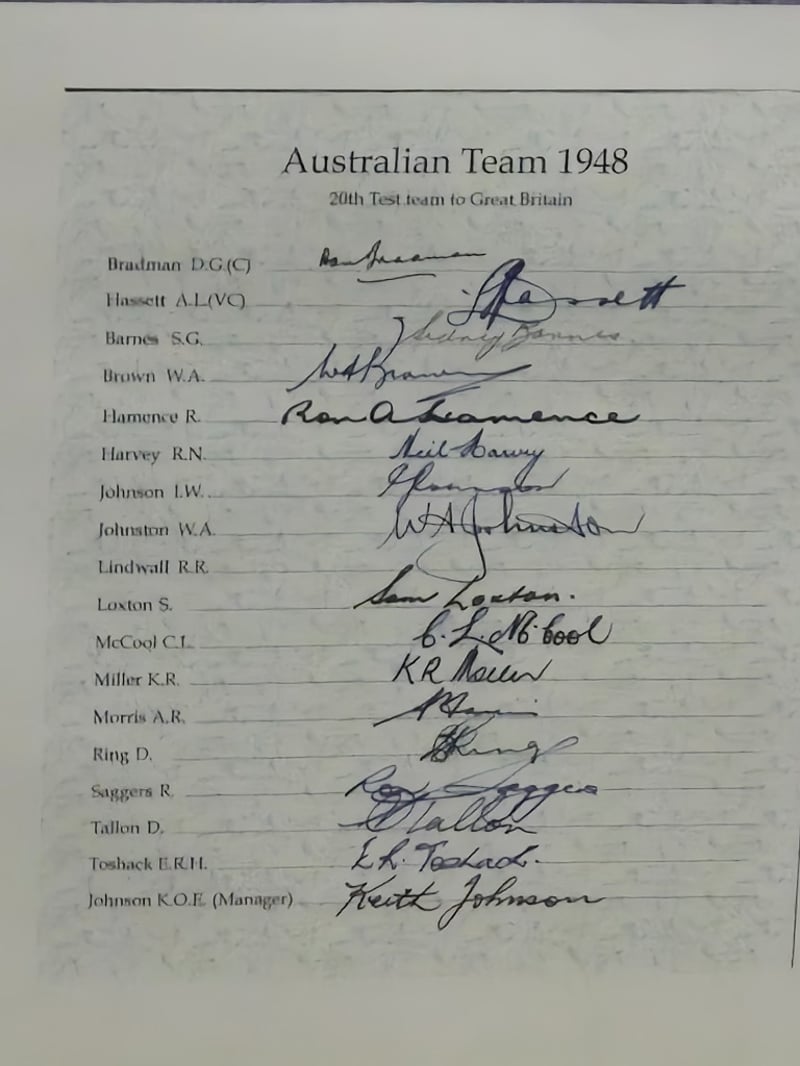 Australian Team 1948
20th Test team to Great Britain
Bradman D.G.(C) Don Bradman
Hassett A.L(VC) Hassett
Barnes S.G. Sidney Barnes
Brown W.A. W A Brown
Hamence R. Ron A Hamence
Harvey R.N. Neil Harvey
Johnson I.W.
Johnston W.A. W A Johnston
Lindwall R.R.
Loxton S. Sam Loxton.
McCool C.L C. L. McCool
Miller K.R. K R Miller
Morris A.R. A Morris
Ring D. D Ring
Saggers R. Ron Saggers
Tallon D. D Tallon
Toshack E.R.H. E. R. Toshack.
Johnson K.O.E. (Manager) Keith Johnson